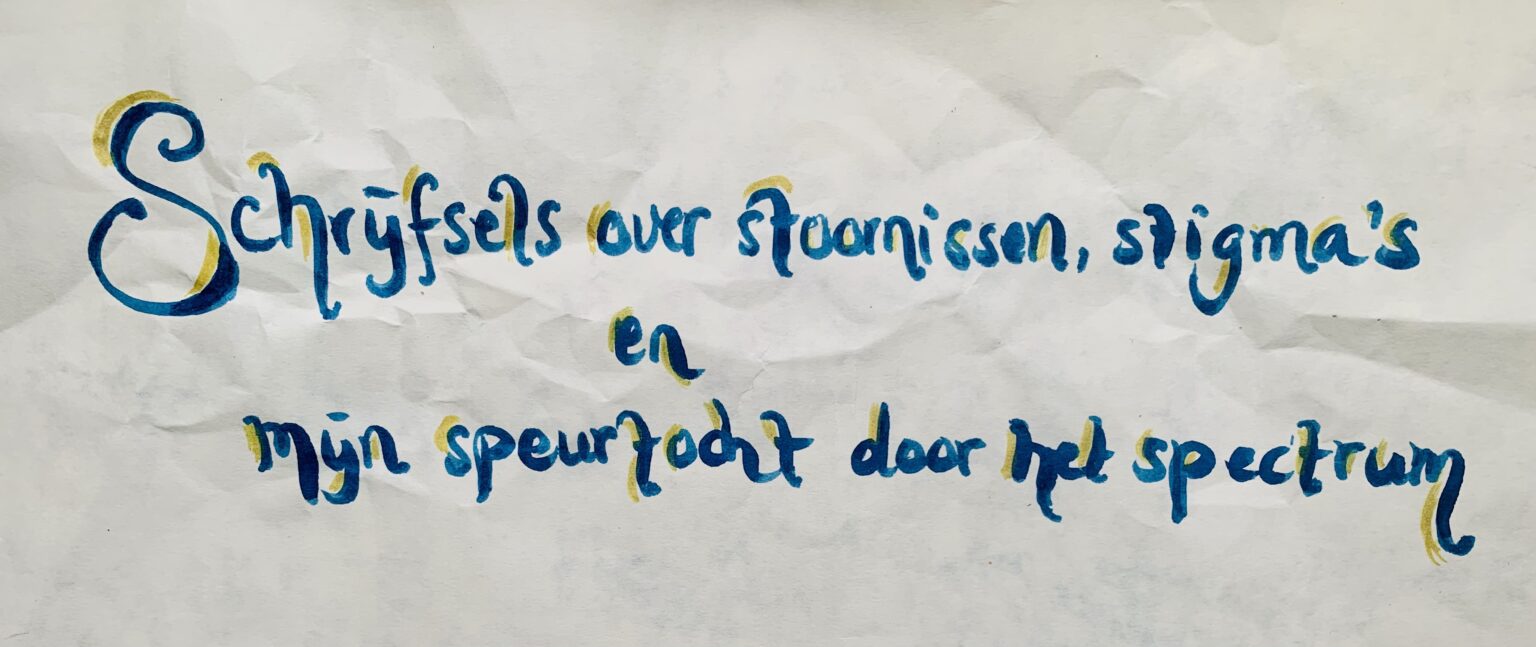 Schrijfsels over stoornissen, stigma's
en
mijn speurtocht door het spectrum